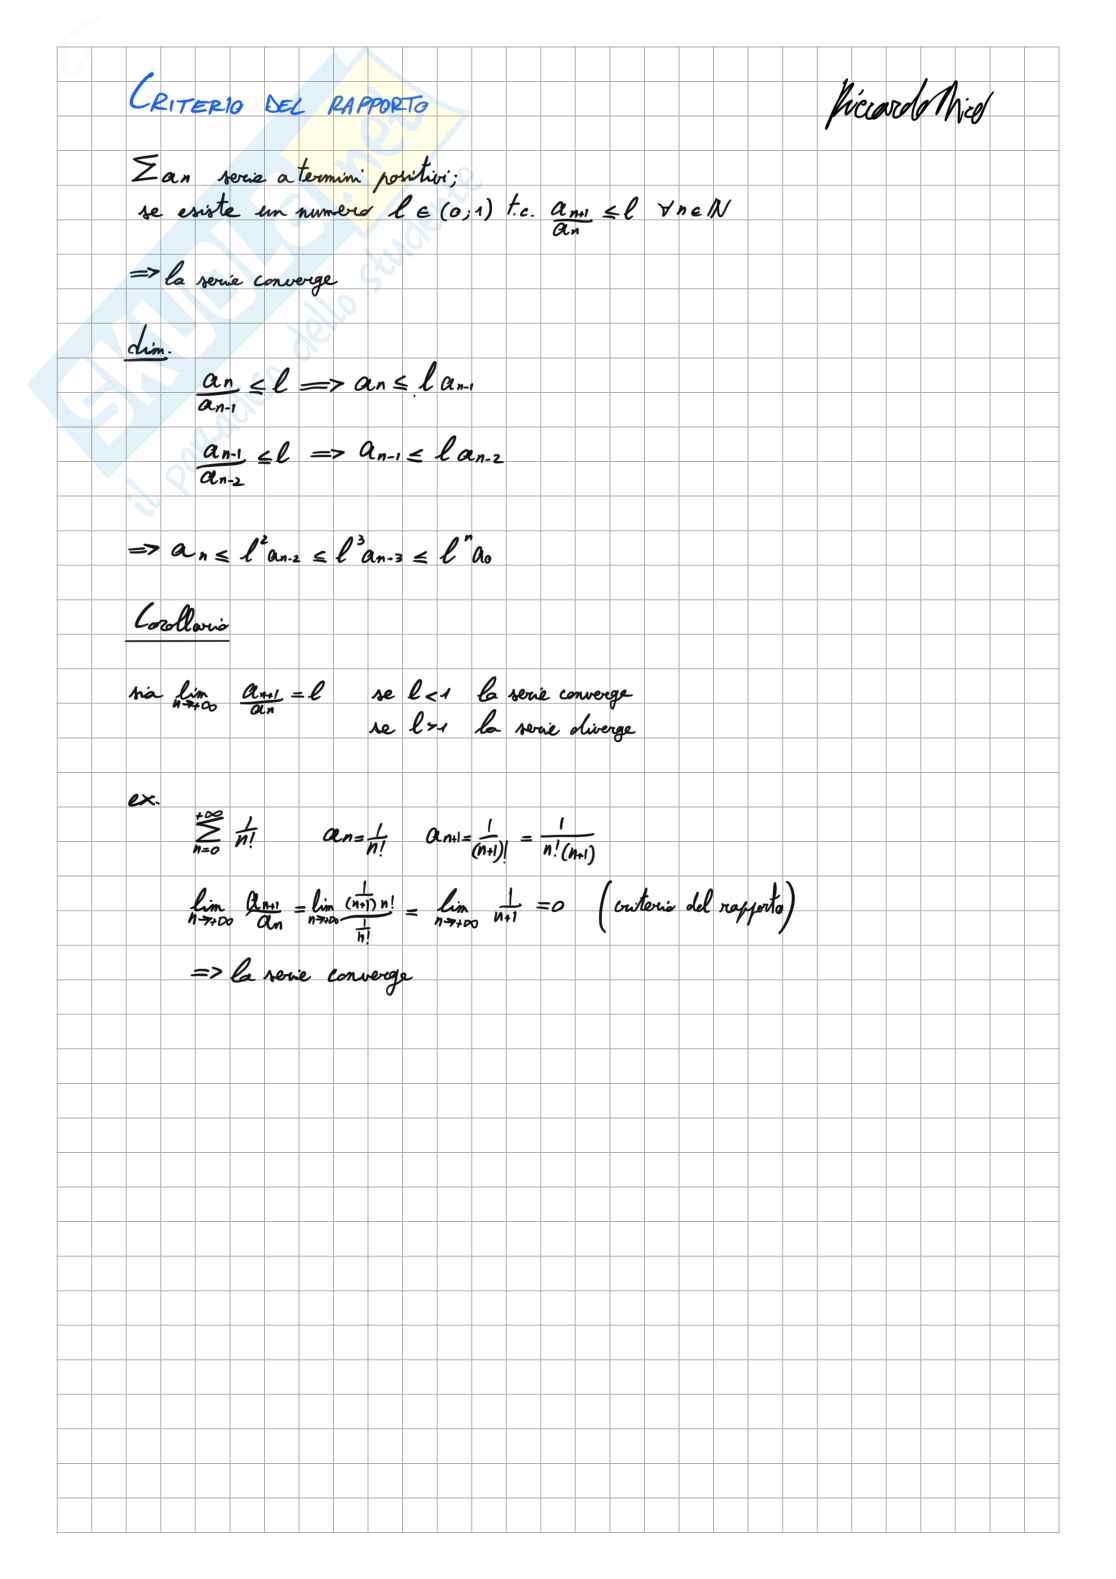 CRITERIO DEL RAPPORTO
Σ an serie a termini positivi;
se esiste un numero l ∈ (0;1) t.c. an+1/an ≤ l ∀n∈ℕ
=> la serie converge
dim.
an/an-1 ≤ l => an ≤ l an-1
an-1/an-2 ≤ l => an-1 ≤ l an-2
=> an ≤ l²an-2 ≤ l³an-3 ≤ lⁿa0
Corollario
sia lim n→+∞ an+1/an = l se l<1 la serie converge
se l>1 la serie diverge
ex.
+∞ Σ n=0 1/n! an = 1/n! an+1 = 1/(n+1)! = 1/n!(n+1)
lim n→+∞ an+1/an = lim n→+∞ 1/(n+1)n!/1/n! = lim n→+∞ 1/n+1 = 0 (criterio del rapporto)
=> la serie converge
SKUOLA.net
il paradiso dello studente